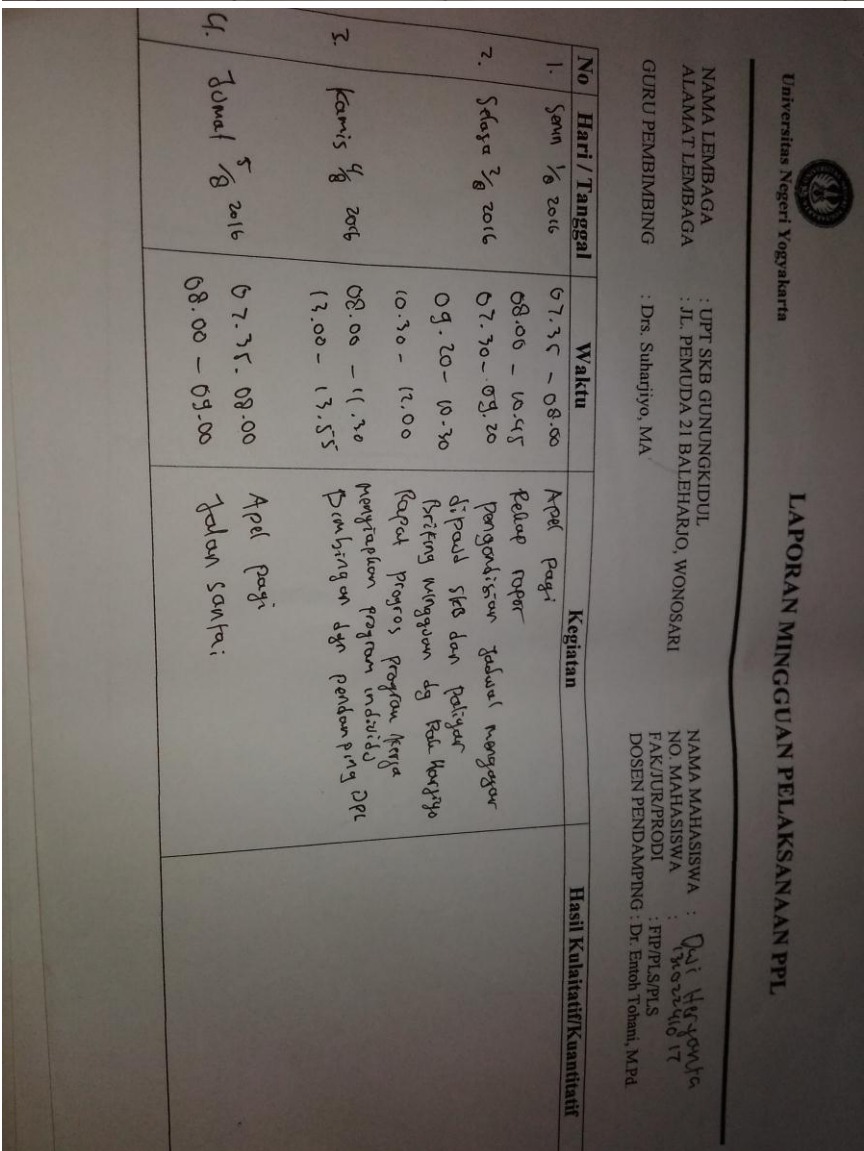 Universitas Negeri Yogyakarta
LAPORAN MINGGUAN PELAKSANAAN PPL
NAMA LEMBAGA : UPT SKB GUNUNGKIDUL
ALAMAT LEMBAGA : JL. PEMUDA 21 BALEHARJO, WONOSARI
GURU PEMBIMBING : Drs. Suharjiyo, MA
NAMA MAHASISWA : Dwi Heryanta
NO. MAHASISWA : 13102241017
FAK/JUR/PRODI : FIP/PLS/PLS
DOSEN PENDAMPING : Dr. Entoh Tohani, M.Pd
No Hari / Tanggal Waktu Kegiatan Hasil Kulaitatif/Kuantitatif
1. Senin 1/8 2016 07.35 - 08.00 Apel pagi
08.00 - 10.45 Rekap rapor
2. Selasa 2/8 2016 07.30 - 09.20 pengondisian Jadwal mengajar
dipaud SKB dan
09.20 - 10.30 Briefing mingguan dg Pak Harjiyo
10.30 - 12.00 Rapat progres program kerja
3. Kamis 4/8 2016 08.00 - 11.30 menyiapkan program individu
13.00 - 13.55 Bimbingan dgn pendamping DPL
4. Jumat 5/8 2016 07.35. 08.00 Apel pagi
08.00 - 09.00 Jalan santai